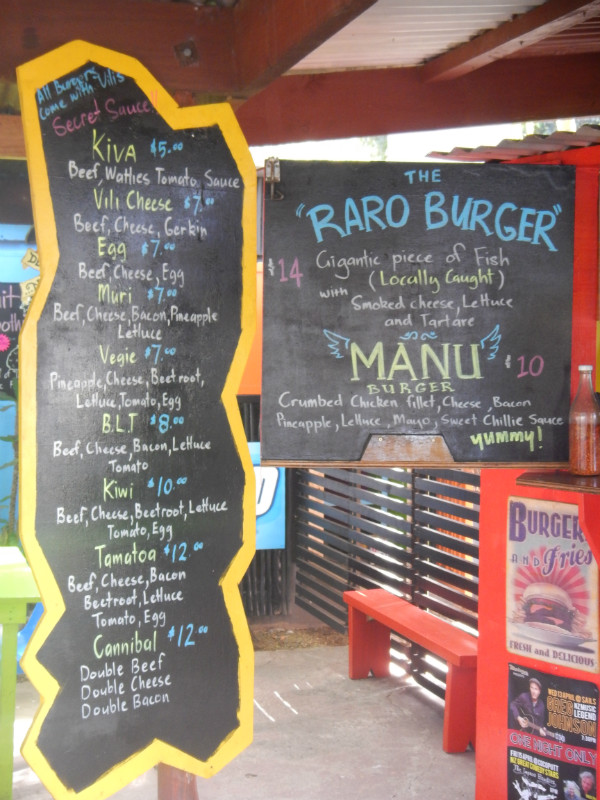 All Burgers
come with Vilis
Secret Sauce!!
Kiva $5.00
Beef, Watties Tomato Sauce
Vili Cheese $7.00
Beef, Cheese, Gerkin
Egg $7.00
Beef, Cheese, Egg
Muri $7.00
Beef, Cheese, Bacon, Pineapple
Lettuce
Vegie $7.00
Pineapple, Cheese, Beetroot,
Lettuce, Tomato, Egg
B.L.T $8.00
Beef, Cheese, Bacon, Lettuce
Tomato
Kiwi $10.00
Beef, Cheese, Beetroot, Lettuce
Tomato, Egg
Tamatoa $12.00
Beef, Cheese, Bacon
Beetroot, Lettuce
Tomato, Egg
Cannibal $12.00
Double Beef
Double Cheese
Double Bacon
THE
"RARO BURGER"
$14 Gigantic piece of Fish
(Locally Caught)
with Smoked cheese, Lettuce
and Tartare
MANU $10
BURGER
Crumbed Chicken fillet, Cheese, Bacon
Pineapple, Lettuce, Mayo, Sweet Chillie Sauce
yummy!
BURGER
AND Fries
FRESH and DELICIOUS
WED 13 APRIL @ SAILS
GREG
JOHNSON
NZ MUSIC
LEGEND
ONE NIGHT ONLY